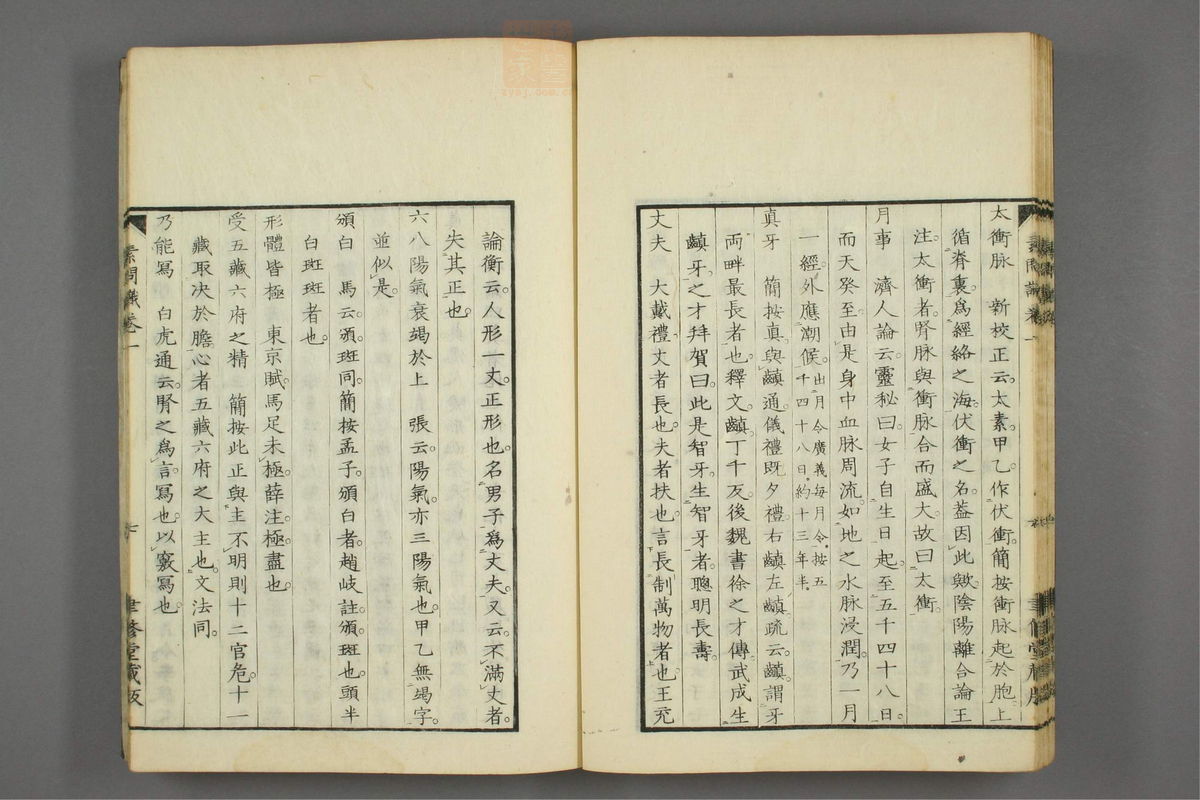 太衝脉　新校正云。太素。甲乙。作伏衝。簡按衝脉起於胞上
循脊裏。爲經絡之海。伏衝之名。蓋因此歟。陰陽離合論王
注。太衝者。腎脉與衝脉合而盛大。故曰太衝。
月事　濟人論云。靈秘曰。女子自生日起。至五千四十八日。
而天癸至。由是身中血脉周流。如地之水脉浸潤。乃一月
一經。外應潮候。出月令廣義每月令。按五千四十八日。約十三年半。
真牙　簡按真與齻通。儀禮既夕禮。右齻左齻。疏云。齻謂牙
兩畔最長者也。釋文。齻。丁千反。後魏書徐之才傳。武成生
齻牙。之才拜賀曰。此是智牙。生智牙者。聰明長壽。
丈夫　大戴禮。丈者長也。夫者扶也。言長制萬物者也。王充
論衡云。人形一丈。正形也。名男子爲丈夫。又云。不滿丈者。
失其正也。
六八陽氣衰竭於上　張云。陽氣。亦三陽氣也。甲乙無竭字。
並似是。
頒白　馬云。頒。斑同。簡按孟子。頒白者。趙岐註。頒。斑也。頭半
白斑斑者也。
形體皆極　東京賦。馬足未極。薛注。極。盡也。
受五藏六府之精　簡按此正與主不明則十二官危。十一
藏取决於膽。心者五藏六府之大主也。文法同。
乃能寫　白虎通云。腎之爲言。寫也。以竅寫也。
素問識卷一
七
聿修堂藏版